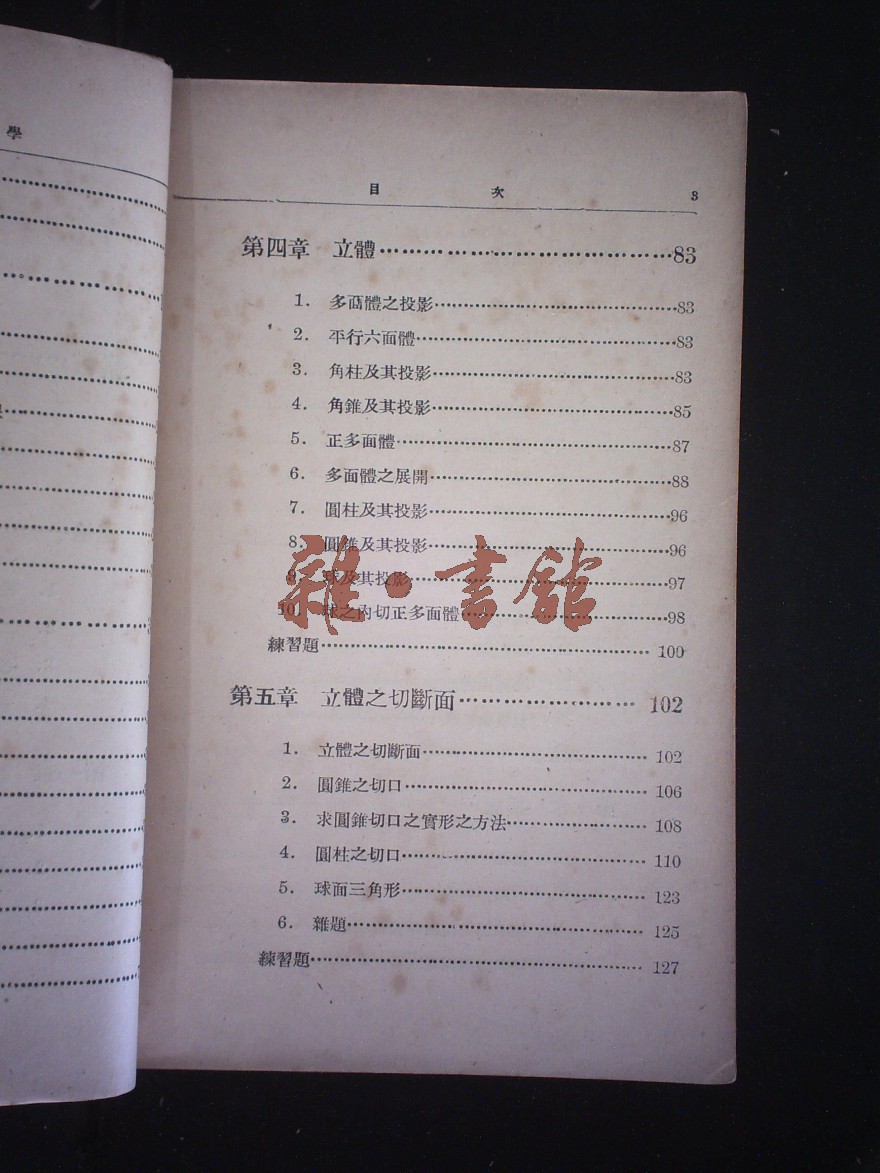 學
目次 3
第四章 立體……………………………83
1. 多面體之投影……………………………83
2. 平行六面體……………………………83
3. 角柱及其投影……………………………83
4. 角錐及其投影……………………………85
5. 正多面體……………………………87
6. 多面體之展開……………………………88
7. 圓柱及其投影……………………………96
8. 圓錐及其投影……………………………96
9. 球及其投影……………………………97
10. 球之內切正多面體……………………………98
練習題……………………………100
雜·書館
第五章 立體之切斷面……………………………102
1. 立體之切斷面……………………………102
2. 圓錐之切口……………………………106
3. 求圓錐切口之實形之方法……………………………108
4. 圓柱之切口……………………………110
5. 球面三角形……………………………123
6. 雜題……………………………125
練習題……………………………127